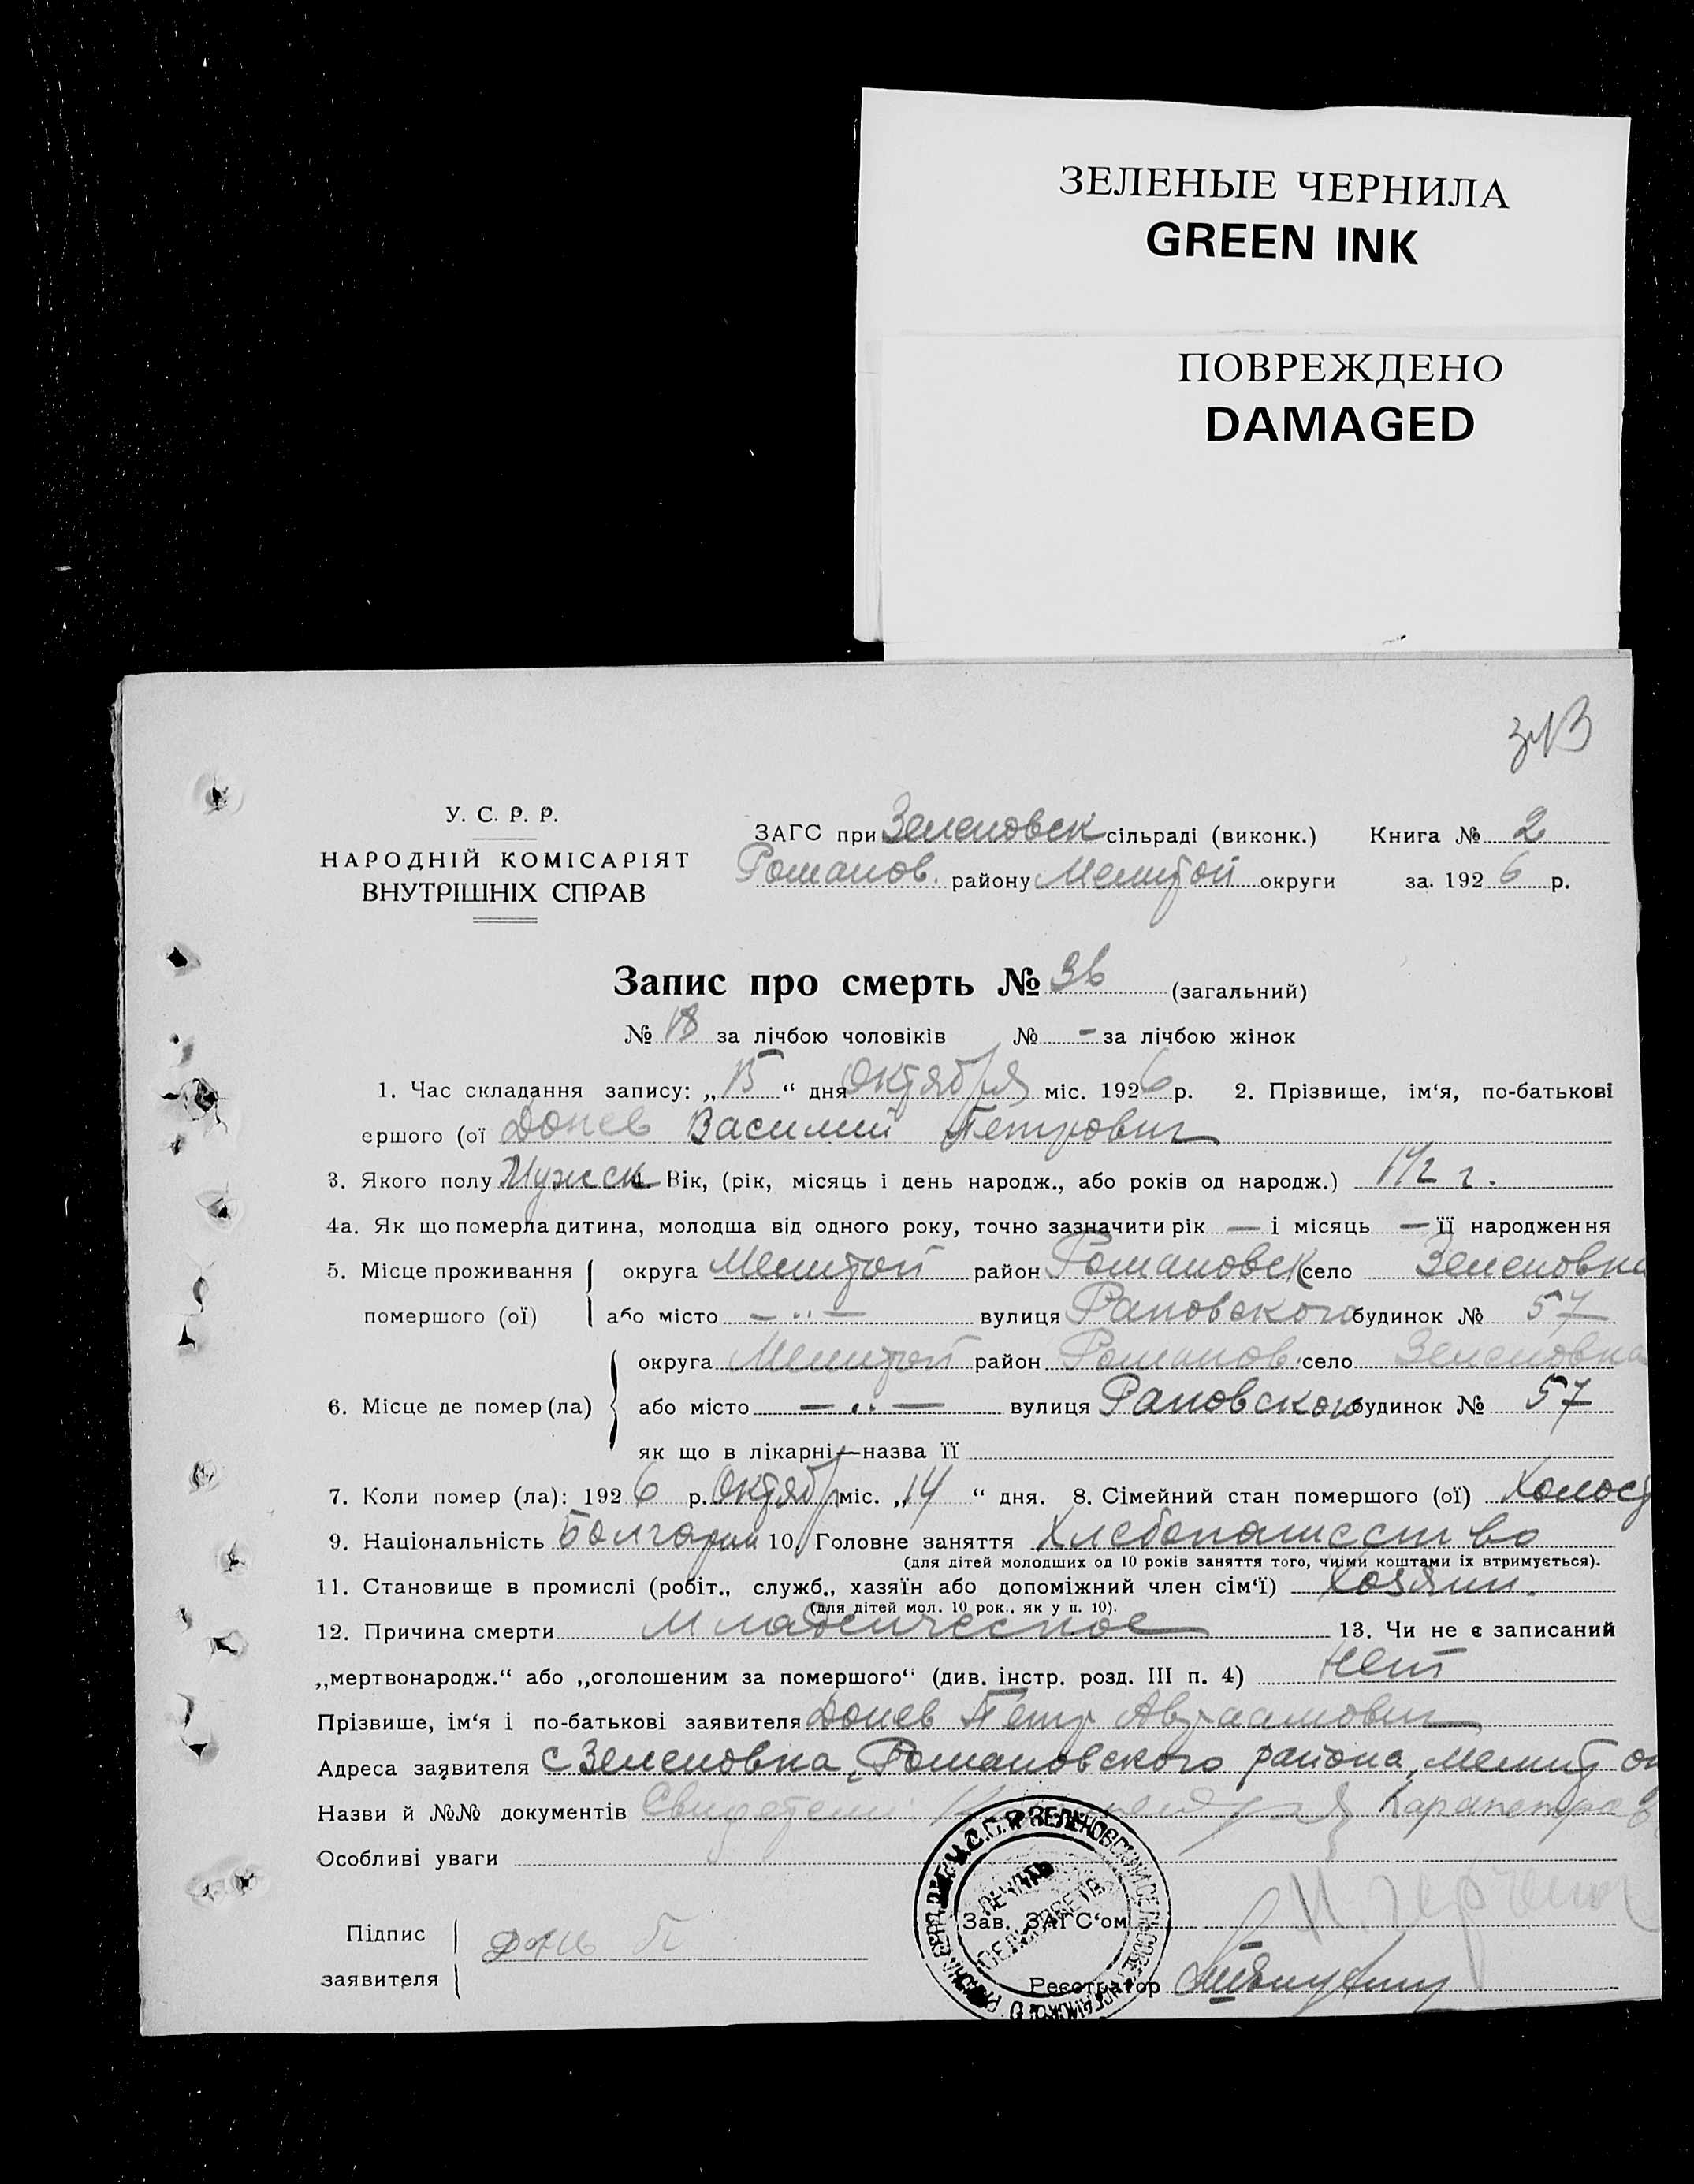 ЗЕЛЕНЫЕ ЧЕРНИЛА
GREEN INK
ПОВРЕЖДЕНО
DAMAGED
У. С. Р. Р.
НАРОДНІЙ КОМІСАРІЯТ
ВНУТРІШНІХ СПРАВ
ЗАГС при Зеленовск сільраді (виконк.) Книга № 2
Романов. району Мелитоп округи за 1926 р.
Запис про смерть № 36 (загальний)
№ 18 за лічбою чоловіків № – за лічбою жінок
1. Час складання запису: „15“ дня Октября міс. 1926 р. 2. Прізвище, ім‘я, по-батькові
ершого (ої Донев Василий Петрович
3. Якого полу Мужск Вік, (рік, місяць і день народж., або років од народж.) 1 1/2 г.
4а. Як що померла дитина, молодша від одного року, точно зазначити рік — і місяць — її народження
5. Місце проживання округа Мелитоп район Романовск село Зеленовка
помершого (ої) або місто — „ — вулиця Раковского будинок № 57
округа Мелитоп район Романов. село Зеленовка
6. Місце де помер (ла) або місто — „ — вулиця Раковского будинок № 57
як що в лікарні—назва її
7. Коли помер (ла): 1926 р. Октяб міс. „14“ дня. 8. Сімейний стан помершого (ої) Холост
9. Національність Болгарин 10. Головне заняття Хлебопашество
(для дітей молодших од 10 років заняття того, чиїми коштами їх втримується).
11. Становище в промислі (робіт., служб., хазяїн або допоміжний член сім‘ї) хозяин.
(для дітей мол. 10 рок., як у п. 10).
12. Причина смерти Младенческое 13. Чи не є записаний
„мертвонародж.“ або „оголошеним за помершого“ (див. інстр. розд. III п. 4) Нет
Прізвище, ім‘я і по-батькові заявителя Донев Петр Авраамович
Адреса заявителя с Зеленовка, Романовского района, Мелит ок
Назви й №№ документів Свидетели:
Особливі уваги
Підпис
заявителя
Зав. ЗАГС‘ом
Реєстратор